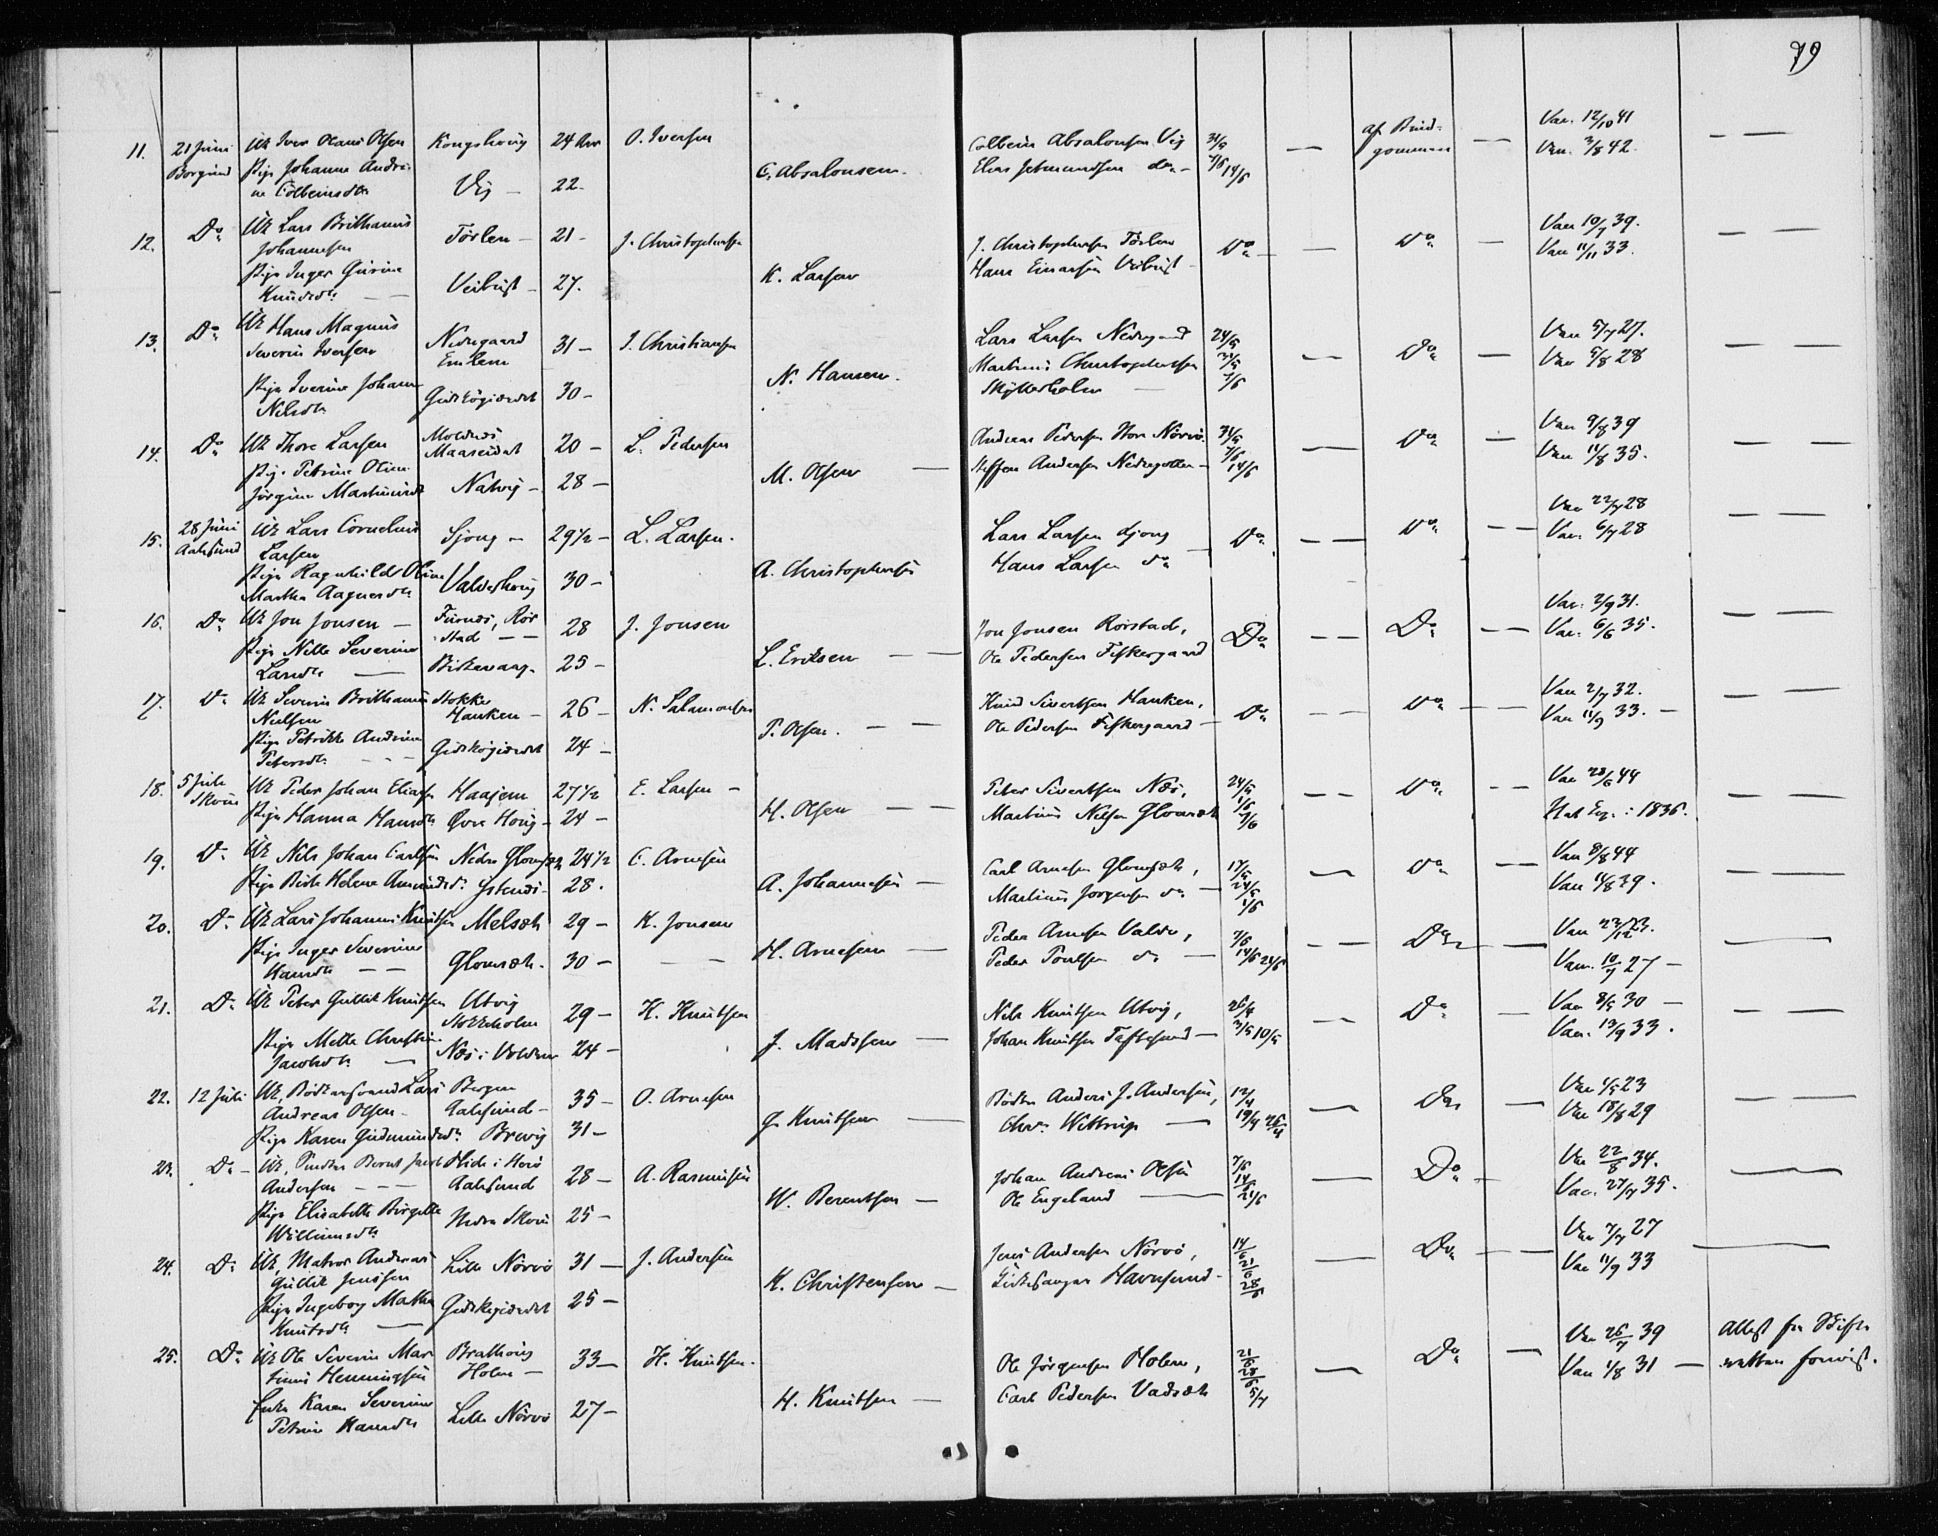 79
11. 21 Juni Uk Iver Olaus Olsen Kongshoug 24 Aar O. Iversen Colbein Absalonsen Vig 31/5 — af Brud- — Vac. 12/10 41 — —
Borgund Pige Johanne Andri- C. Absalonsen. Elias do — 7/6 14/6 gommen Vac. 42.
ne Colbeinsdtr Vig — 22.
12. Do Uk Lars Brithanius Törlen — 21 — J. Christophersen J. Christophersen Törlen Do — Do — Vac 10/7 39. — —
Johannesen Hans Einarsen Veibust Vac 11/11 33.
Pige Inger Gurine Veibust — 27. K. Larsen
Knudsdtr —
13. Do Uk Hans Magnus Nedregaard 31 — I. Christiansen Lars Larsen Nedregaard 24/5 — Do — Vac 5/7 27. — —
Severin Iversen Emlem Martinus Christophersen 31/5 Vac 5/8 28
Pige Iverine Johanne Gidskögierdet 30 — N. Hansen. Skytterholm — 7/6
Nilsdtr
14. Do Uk Thore Larsen Moldnæs 20 — L. Pedersen Andreas Pedersen Store Nörvö 31/5 — Do — Vac 9/8 39 — —
Maaseidet 7/6
Pige Petrine Oline Natvig — 28 — M. Olsen — Steffen Andersen — 14/6 Vac 11/8 35.
Jörgine Martinusdtr
15. 28 Juni Uk Lars Cornelius Gjong — 29½ — L. Larsen. Lars Larsen Gjong Do — — Do — — Vac 22/7 28 — —
Aalesund Larsen Hans Larsen do — Vac. 6/7 28
Pige Ragnhild Oline Valderhoug 30 — A. Christophersen
Martha Aagesdtr
16. Do Uk Jon Jonsen — Furnæs, Rör 28 J. Jonsen Jon Jonsen Rörstad, Do — — Do — — Vac. 2/9 31. — —
stad — — Ole Pedersen Fiskergaard Vac. 6/6 35.
Pige Nille Severine Bikevaag. 25 — L. Eriksen — —
Larsdtr —
17. Do Uk Severin Brithanius Stokke 26 — N. Salamonsen Knud Sivertsen Hanken, Do — — Do — — Vac 2/7 32. — —
Nielsen Hanken — Ole Pedersen Fiskergaard — Vac 11/9 33. —
Pige Petrikke Andrine Gidskögierdet 24 — P. Olsen. — —
Petersdtr — — —
18. 5 Juli Uk Peder Johan Eliasen Haajem 27½ E. Larsen — Peter Sivertsen Næs, 24/5 — — Do — — Vac 28/6 44 — —
Skoue Pige Hanna Hansdtr Øvre Houg — 24 — H. Olsen — — Martinus Nilsen Glomsæt 1/6 7/6 : 1836.
19. Do Uk Nils Johan Carlsen Nedre Glomsæt 24½ C. Arnesen Carl Arnesen Glomsæt, 17/5 — Do — — Vac 8/8 44 — —
Pige Birte Helene Amundsdr. Ystenæs — 28. A. Johannesen — Martinus Jörgensen do — 24/5 1/6 Vac 14/8 39.
20. Do Uk Lars Johannes Knutsen Melsæt 29 — K. Jonsen Peder Arnesen Valde, 7/6 — — Do — Vac 23. —
Pige Inger Severine Glomsæt. 30 — — — H. Arnesen — Peder Poulsen do — 14/6 21/6 Vacc. 10/7 27 —
Hansdtr — —
21. Do Uk Peter Gullik Knutsen Utvig 29 — K. Knutsen Nils Knutsen Utvig, 26/4 — Do — Vac 8/5 30 — — —
Stokkeholm Johan Knutsen Taftesund — 3/5 10/5 Vac. 13/9 33.
Pige Mette Christine Næs i Volden 24 — J. Madssen —
Jacobsdtr —
22. 12 Juli Uk, Bödkersvend Lars Bergen 35 — O. Arnesen Bödker Anders J. Andersen, 12/4 — Do — Vac 1/5 23 — —
Andreas Olsen — Aalesund — Chr. Wittrup — 19/4 26/4 Vac 18/8 29
Pige Karen Gudmundsdr. Brevig 31 — G. Knutsen —
23. Do — Uk, Snedker Bernt Jacob i Herö 28 — A. Rasmusen Johan Andreas Olsen 7/6 — Do — Vac 22/8 34. —
Andersen — — — Aalesund Ole Engeland — 14/6 21/6 Vac. 27/7 35.
Pige Elisabeth Birgitte Nedre Skoue 25 — W. Berentsen —
Williumsdtr
24. Do Uk, Matros Andreas Lille Nörvö 31 — J. Andersen Jens Andersen Nörvö, 14/6 — Do — — Vac 7/7 27 —
Gullik Jenssen Kirkesanger Havnsund — 21/6 28/6 Vac 11/9 33
Pige Ingeborg Mathea Gidskegierdet 25 — K. Christensen —
Knutsdtr —
25. Do Uk Ole Severin Mar Bratholm 33 — H. Knutsen. Ole Jörgensen Holen, 21/6 — Do — Vac 26/7 39 Attest fra Skifte-
tinus Henningsen Holm — Carl Pedersen Vadsæt 28/6 5/7 Vac 1/8 31 — retten forevist.
Enke Karen Severine Lille Nörvö 27 — H. Knutsen —
Petrine Hansdtr